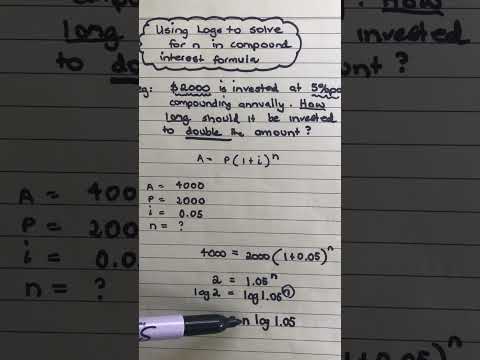 Using Logs to solve
for n in compound
interest formula
eg: $2000 is invested at 5%pa
compounding annually. How
long should it be invested
to double the amount?
A = P(1+i)^n
A = 4000
P = 2000
i = 0.05
n = ?
4000 = 2000(1+0.05)^n
2 = 1.05^n
log 2 = log 1.05^n
n log 1.05